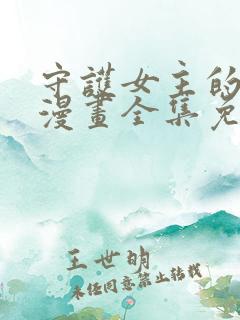 守護女主的
漫畫全集免
王世明
未經同意禁止轉載